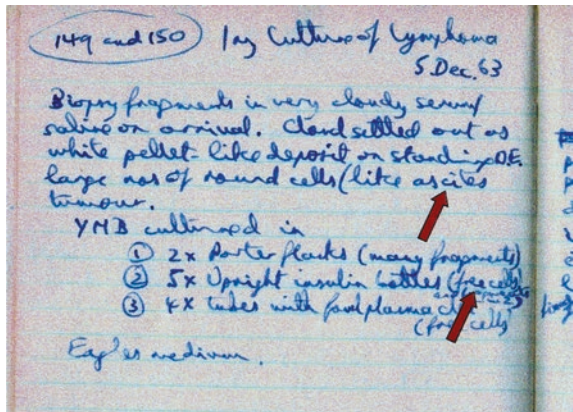 149 and 150
1ry Culture of Lymphoma
5 Dec. 63
Biopsy fragments in very cloudy serum/
saline on arrival. Cloud settled out as
white pellet-like deposit on standing O.E.
large nos of round cells (like ascites
tumour.
YMB cultured in
① 2x Porter flasks (many fragments)
② 5x Upright insulin bottles (free cells
③ 4x tubes with fowl plasma
(free cells
Eagles medium.